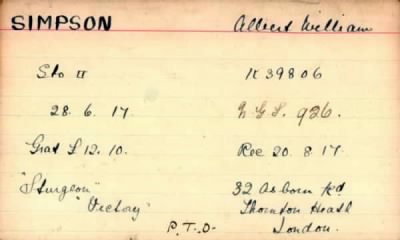 SIMPSON Albert William
Sto II K 39806
28. 6. 17. N.G.S. 926.
Grat £12. 10. Rec 20. 8. 17.
"Sturgeon" 32 Osborn Rd
"Victory" Thornton Heath
P.T.O. London.